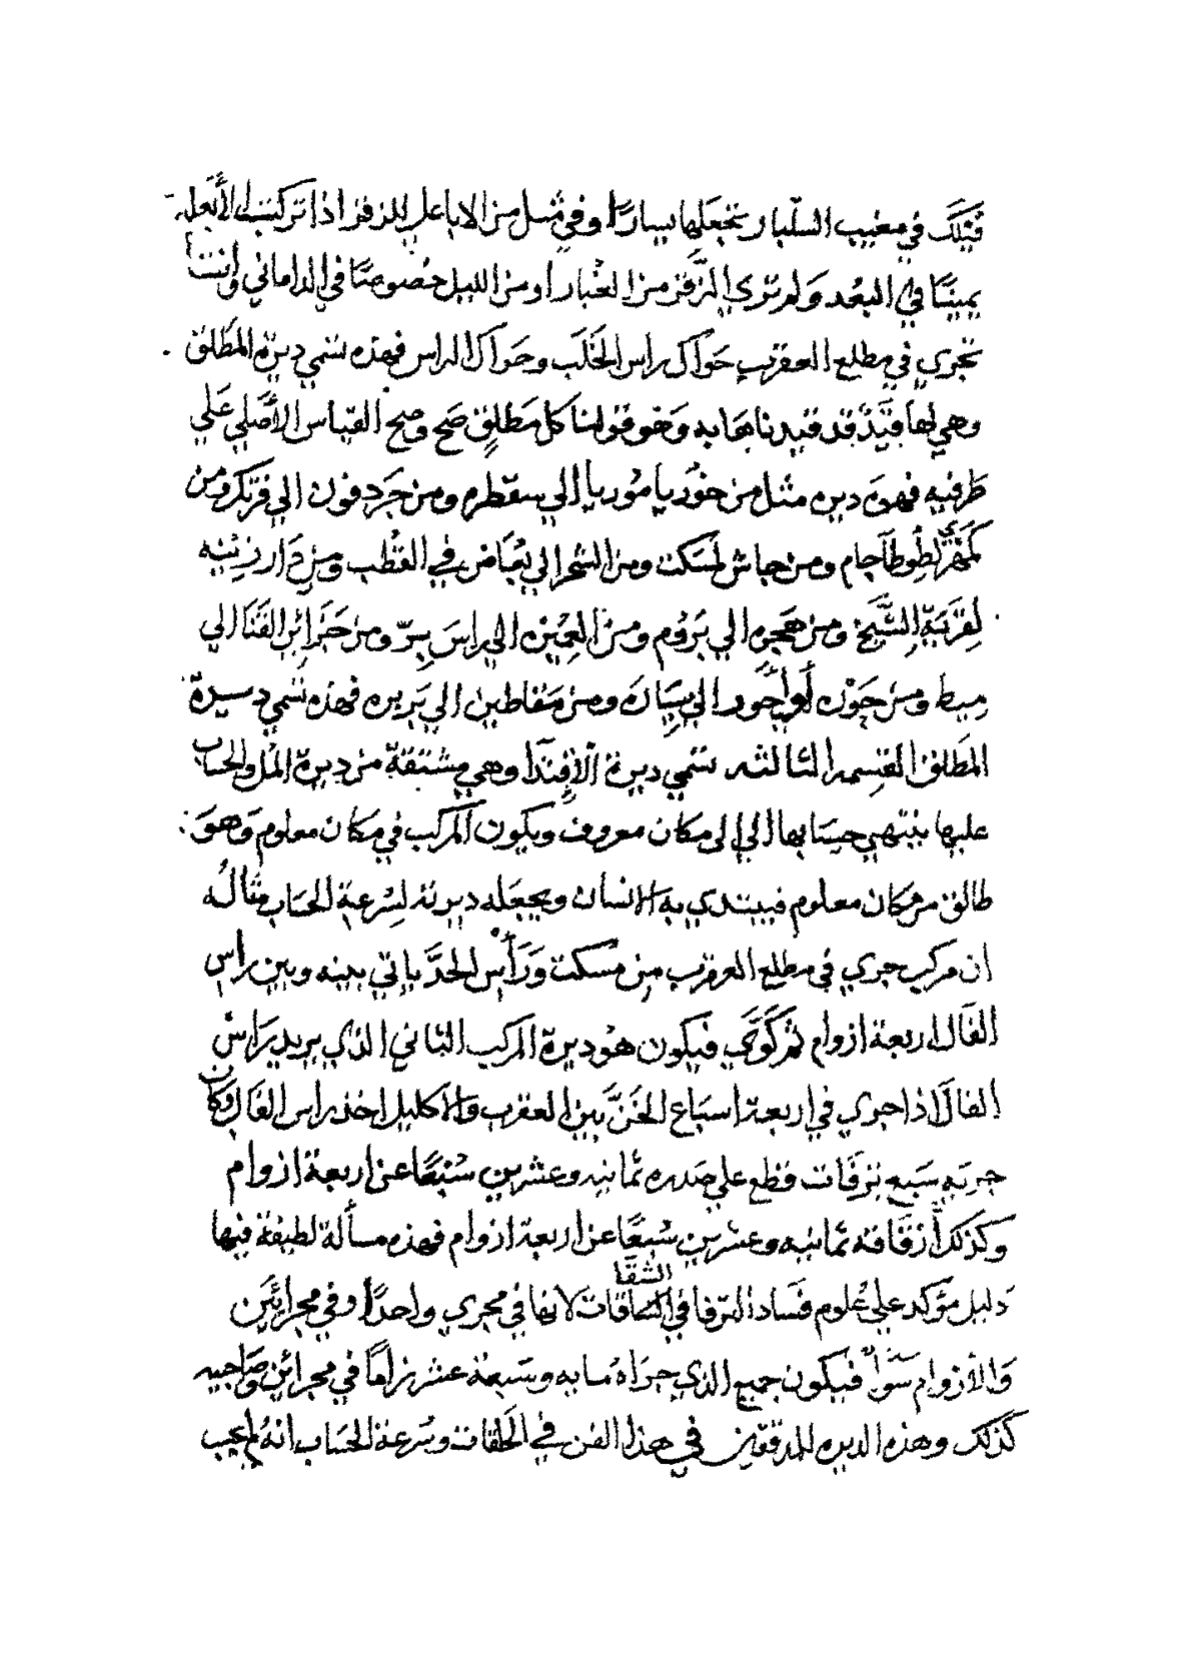 فتنك في مغيب السلبار تجعلها يسارًا وفي مثل من الاباعل للزقر اذا تركت الأبعله
يمينًا في البعد ولم تري الزقر من الغبار او من الليل خصوصًا في الداماني وانت
تجري في مطلع العقرب حواك راس الخلب وحواك الراس فهذه تسمي ديرة المطلق
وهي لها قيد قد قيدناها به وهو قولنا كل مطلق صح وصح القياس الأصلي علي
طرفيه فهو ديره مثل من خوريا موريا الي سقطره ومن جرد فون الي فرتك ومن
لطوطاجام ومن جاش لمسكت ومن الشحر الي في القطب ومن دار زينه
لقرية الشيخ ومن هجره الي بروم ومن العميره الي راس بر ومن جزائر القنا الي
ميط ومن جوزه الي بيان ومن مقاطين الي بربره فهذه تسمي ديرة
المطلق القسمه الثالثه تسمي ديرة الأقتدا وهي مشتقة من ديرة المل والحساب
عليها ينتهي حسابها الي الى مكان معروف ويكون المركب في مكان معلوم وهو
طالق من مكان معلوم فيبتدي به الانسان ويجعله ديرته لسرعة الحساب مثاله
ان مركب جري في مطلع العقرب من مسكت ورأس الحد ياتي بينه وبين راس
الفال اربعة ازوام فيكون هو ديرة المركب الثاني الذي يريد راس
الفال اذا جري في اربعة اسباع الخن بين العقرب والاكليل اخذ راس الفال وكان
جريه سبع ترفات قطع علي صدره ثمانيه وعشرين سبعًا عن اربعة ازوام
وكذلك أزقاقه ثمانيه وعشرين سبعًا عن اربعة ازوام فهذه مسألة لطيفة فيها
دليل مؤكد علي علوم فساد الترفا في الشقاقات لانها في مجري واحدًا وفي مجرائين
والأزوام سوا فيكون جميع الذي جراه مايه وسبعة عشر زامًا في مجرائين وصاحبيه
كذلك وهذه الديره للمدققين في هذا الفن في الحلقات وسرعة الحساب انه لم يجب